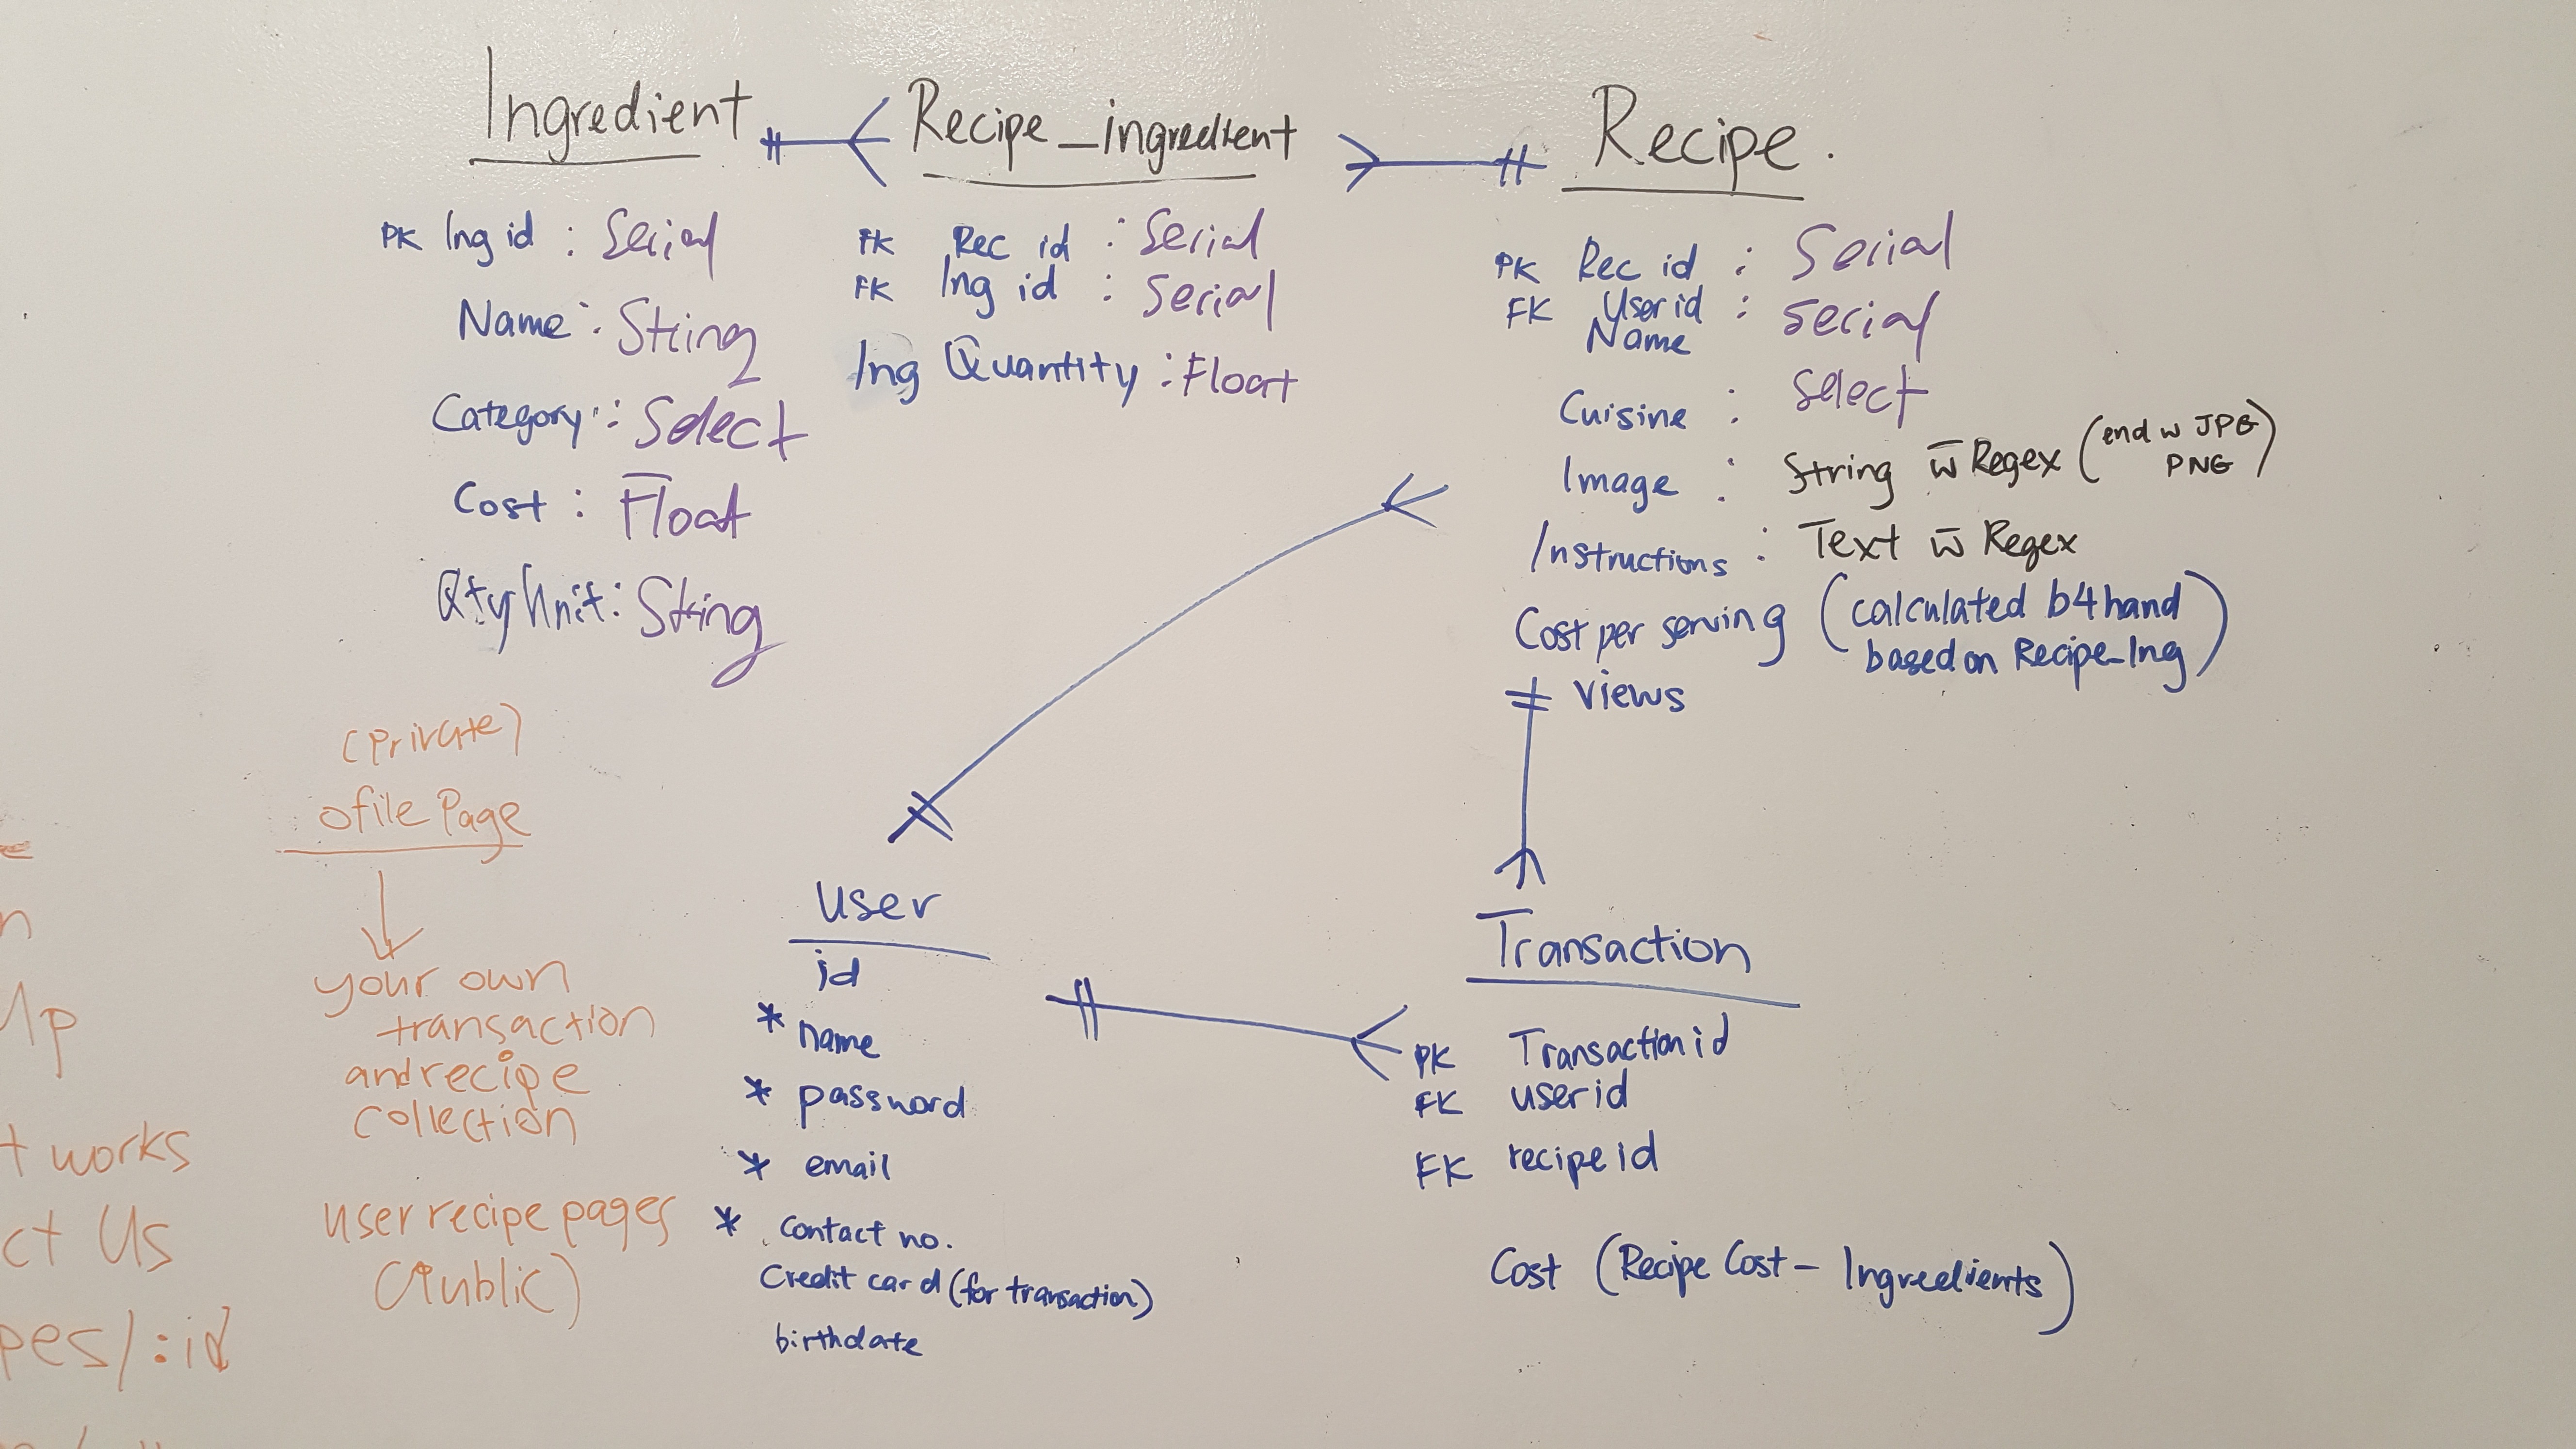 Ingredient
PK Ing id : Serial
Name : String
Category : Select
Cost : Float
Qty Unit : String
Recipe_ingredient
FK Rec id : Serial
FK Ing id : Serial
Ing Quantity : Float
Recipe.
PK Rec id : Serial
FK User id : Serial
Name
Cuisine : Select
Image : String w̄ Regex (end w JPG
PNG)
Instructions : Text w̄ Regex
Cost per serving (calculated b4hand
based on Recipe_Ing)
views
(private)
ofile Page
your own
transaction
and recipe
collection
user recipe pages
(Public)
n
Up
t works
ct Us
pes/:id
User
id
* name
* password
* email
* contact no.
Credit card (for transaction)
birthdate
Transaction
PK Transaction id
FK user id
FK recipe id
Cost (Recipe Cost - Ingredients)